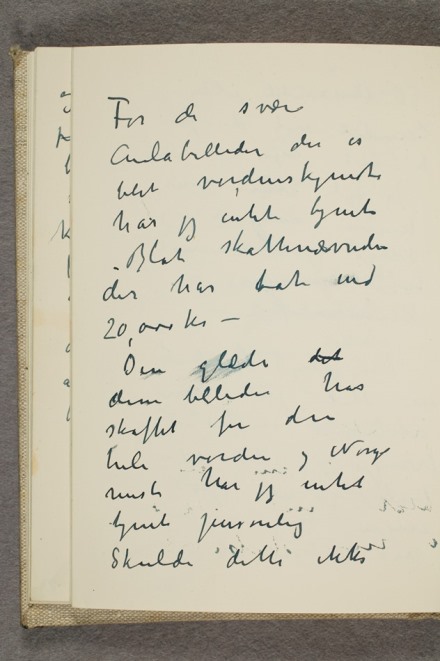 For de svære
Aulabilleder der er
blit verdenskjendte
har jeg intet tjent
Blot skattenævnden
der har tat ind
20,000 kr –
Den glæde det
disse billeder har
skaffet for den
hele verden og Norge
mest har jeg intet
tjent personlig
Skulde dette ikke